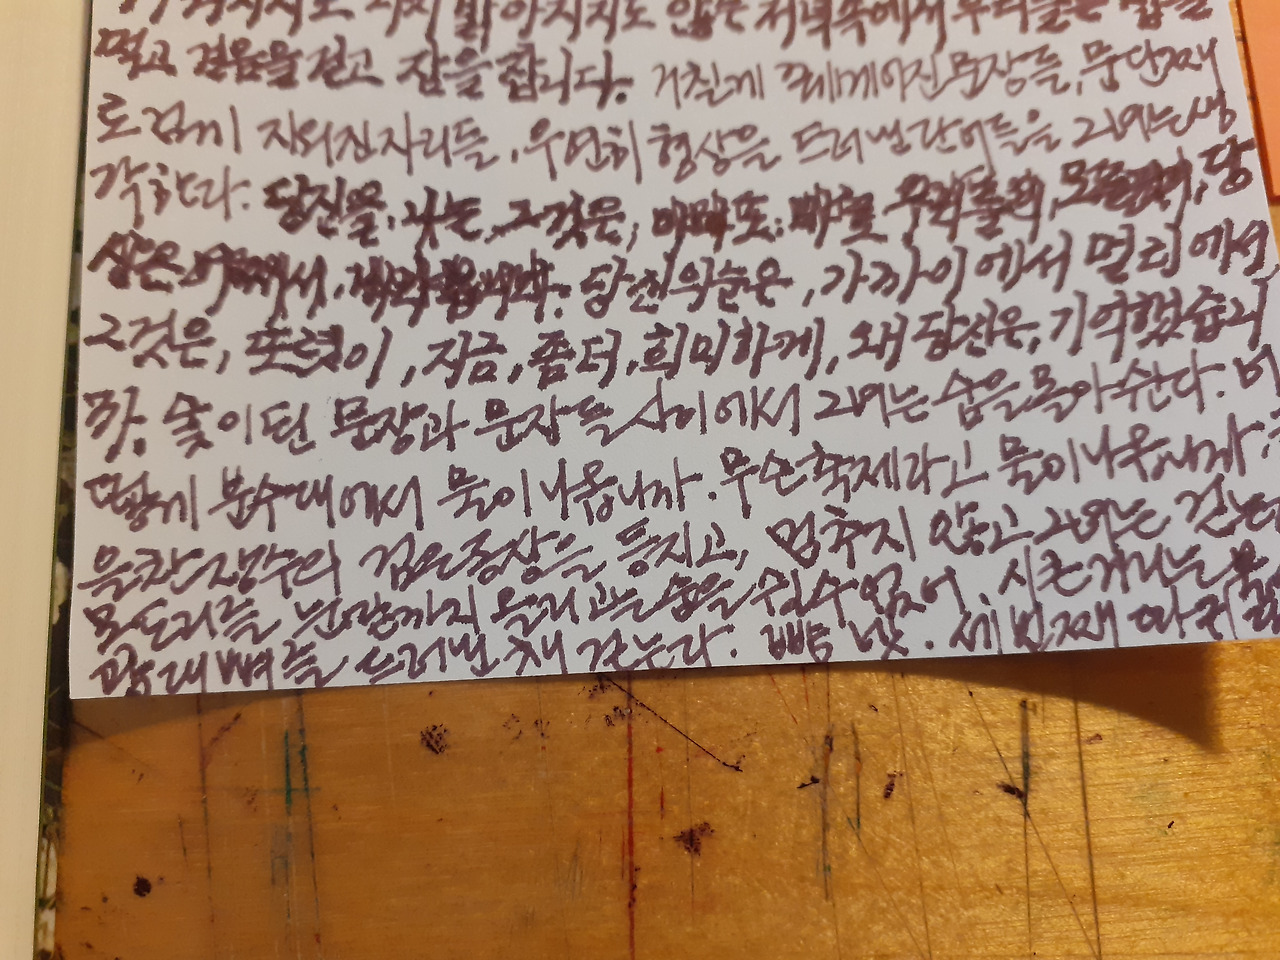 지지도 밝아지지도 않는 저녁 속에서 우리들은 밥을
먹고 걸음을 걷고 잠을 잡니다. 거칠게 꿰매어진 문장들, 문단째
로 검게 지워진 자리들, 우연히 형상을 드러낸 단어들을 그녀는 생
각한다. 당신을, 나는, 그것은, 아마도, 바로, 우리들의, 모든 것이, 당
신은, 어째서, 바라봅니다. 당신의 눈은, 가까이에서 멀리에서,
그것은, 또렷이, 지금, 좀더, 희미하게, 왜 당신은, 기억했습니
까. 숯이 된 문장과 문장들 사이에서 그녀는 숨을 몰아쉰다. 어
떻게 분수대에서 물이 나옵니까. 무슨 축제라고 물이 나옵니까.
을 찬 장수의 검은 동상을 등지고, 멈추지 않고 그녀는 걷는다.
목도리를 눈까지 올리고는 숨을 쉴 수 없어, 시큰거리는
광대뼈를 드러낸 채 걷는다. 뺨 넷. 세번째 따귀를